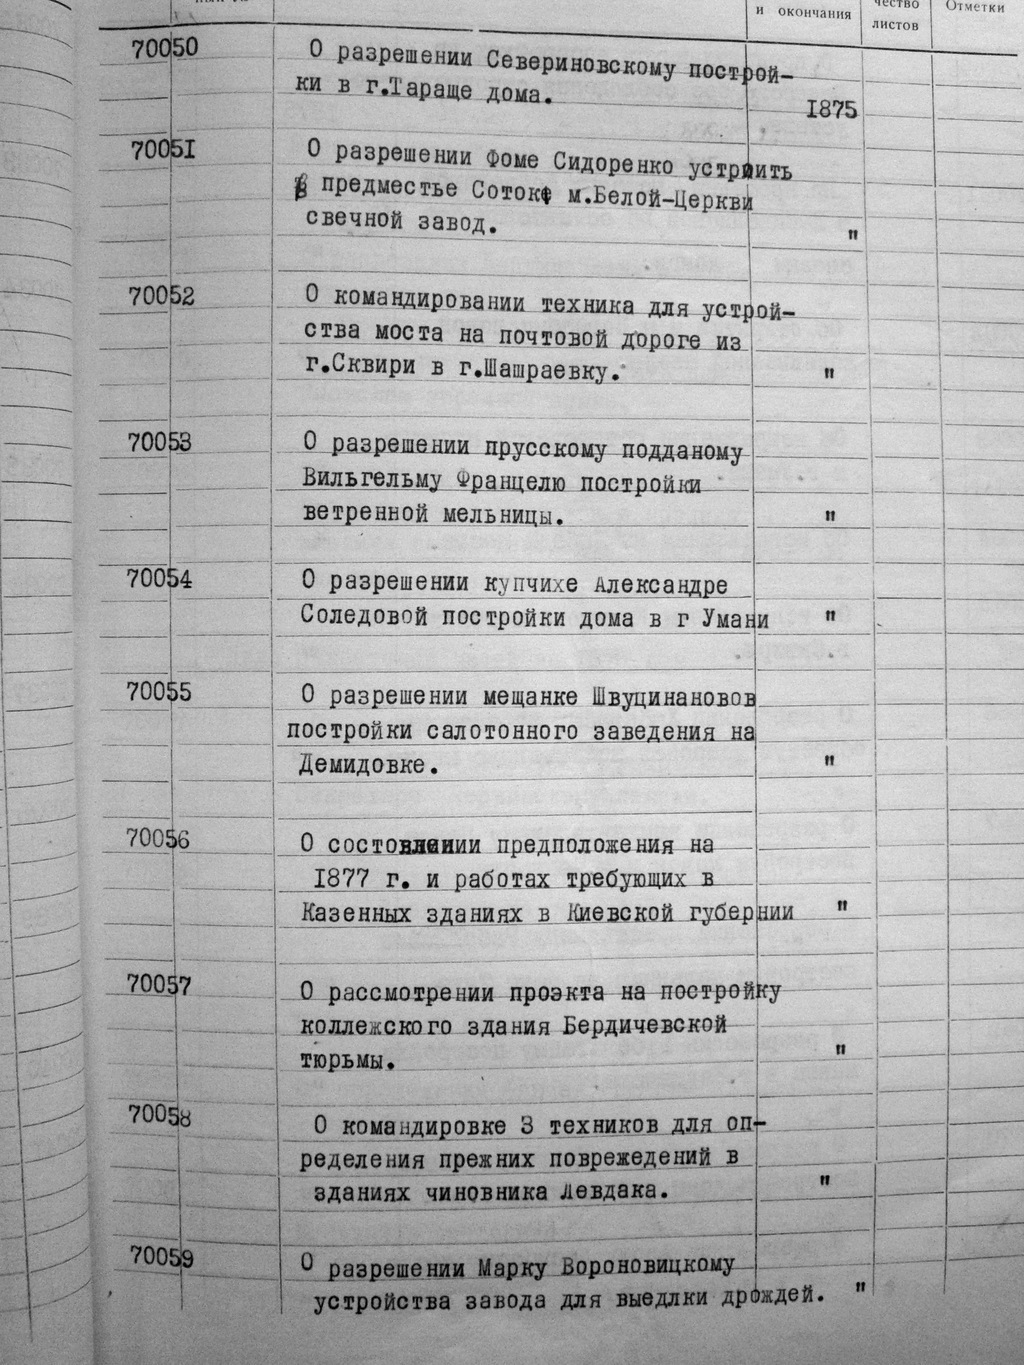 и окончания
чество
листов
Отметки
70050
О разрешении Севериновскому построй-
ки в г.Тараще дома.
1875
70051
О разрешении Фоме Сидоренко устроить
В предместье Соток м.Белой-Церкви
свечной завод.
"
70052
О командировании техника для устрой-
ства моста на почтовой дороге из
г.Сквири в г.Шашраевку.
"
70053
О разрешении прусскому подданому
Вильгельму Францелю постройки
ветренной мельницы.
"
70054
О разрешении купчихе Александре
Соледовой постройки дома в г Умани "
70055
О разрешении мещанке Швуцинановов
постройки салотонного заведения на
Демидовке.
"
70056
О состовлении предположения на
1877 г. и работах требующих в
Казенных зданиях в Киевской губернии "
70057
О рассмотрении проэкта на постройку
коллежского здания Бердичевской
тюрьмы.
"
70058
О командировке 3 техников для оп-
ределения прежних поврежедений в
зданиях чиновника Левдака.
"
70059
О разрешении Марку Вороновицкому
устройства завода для выедлки дрождей. "